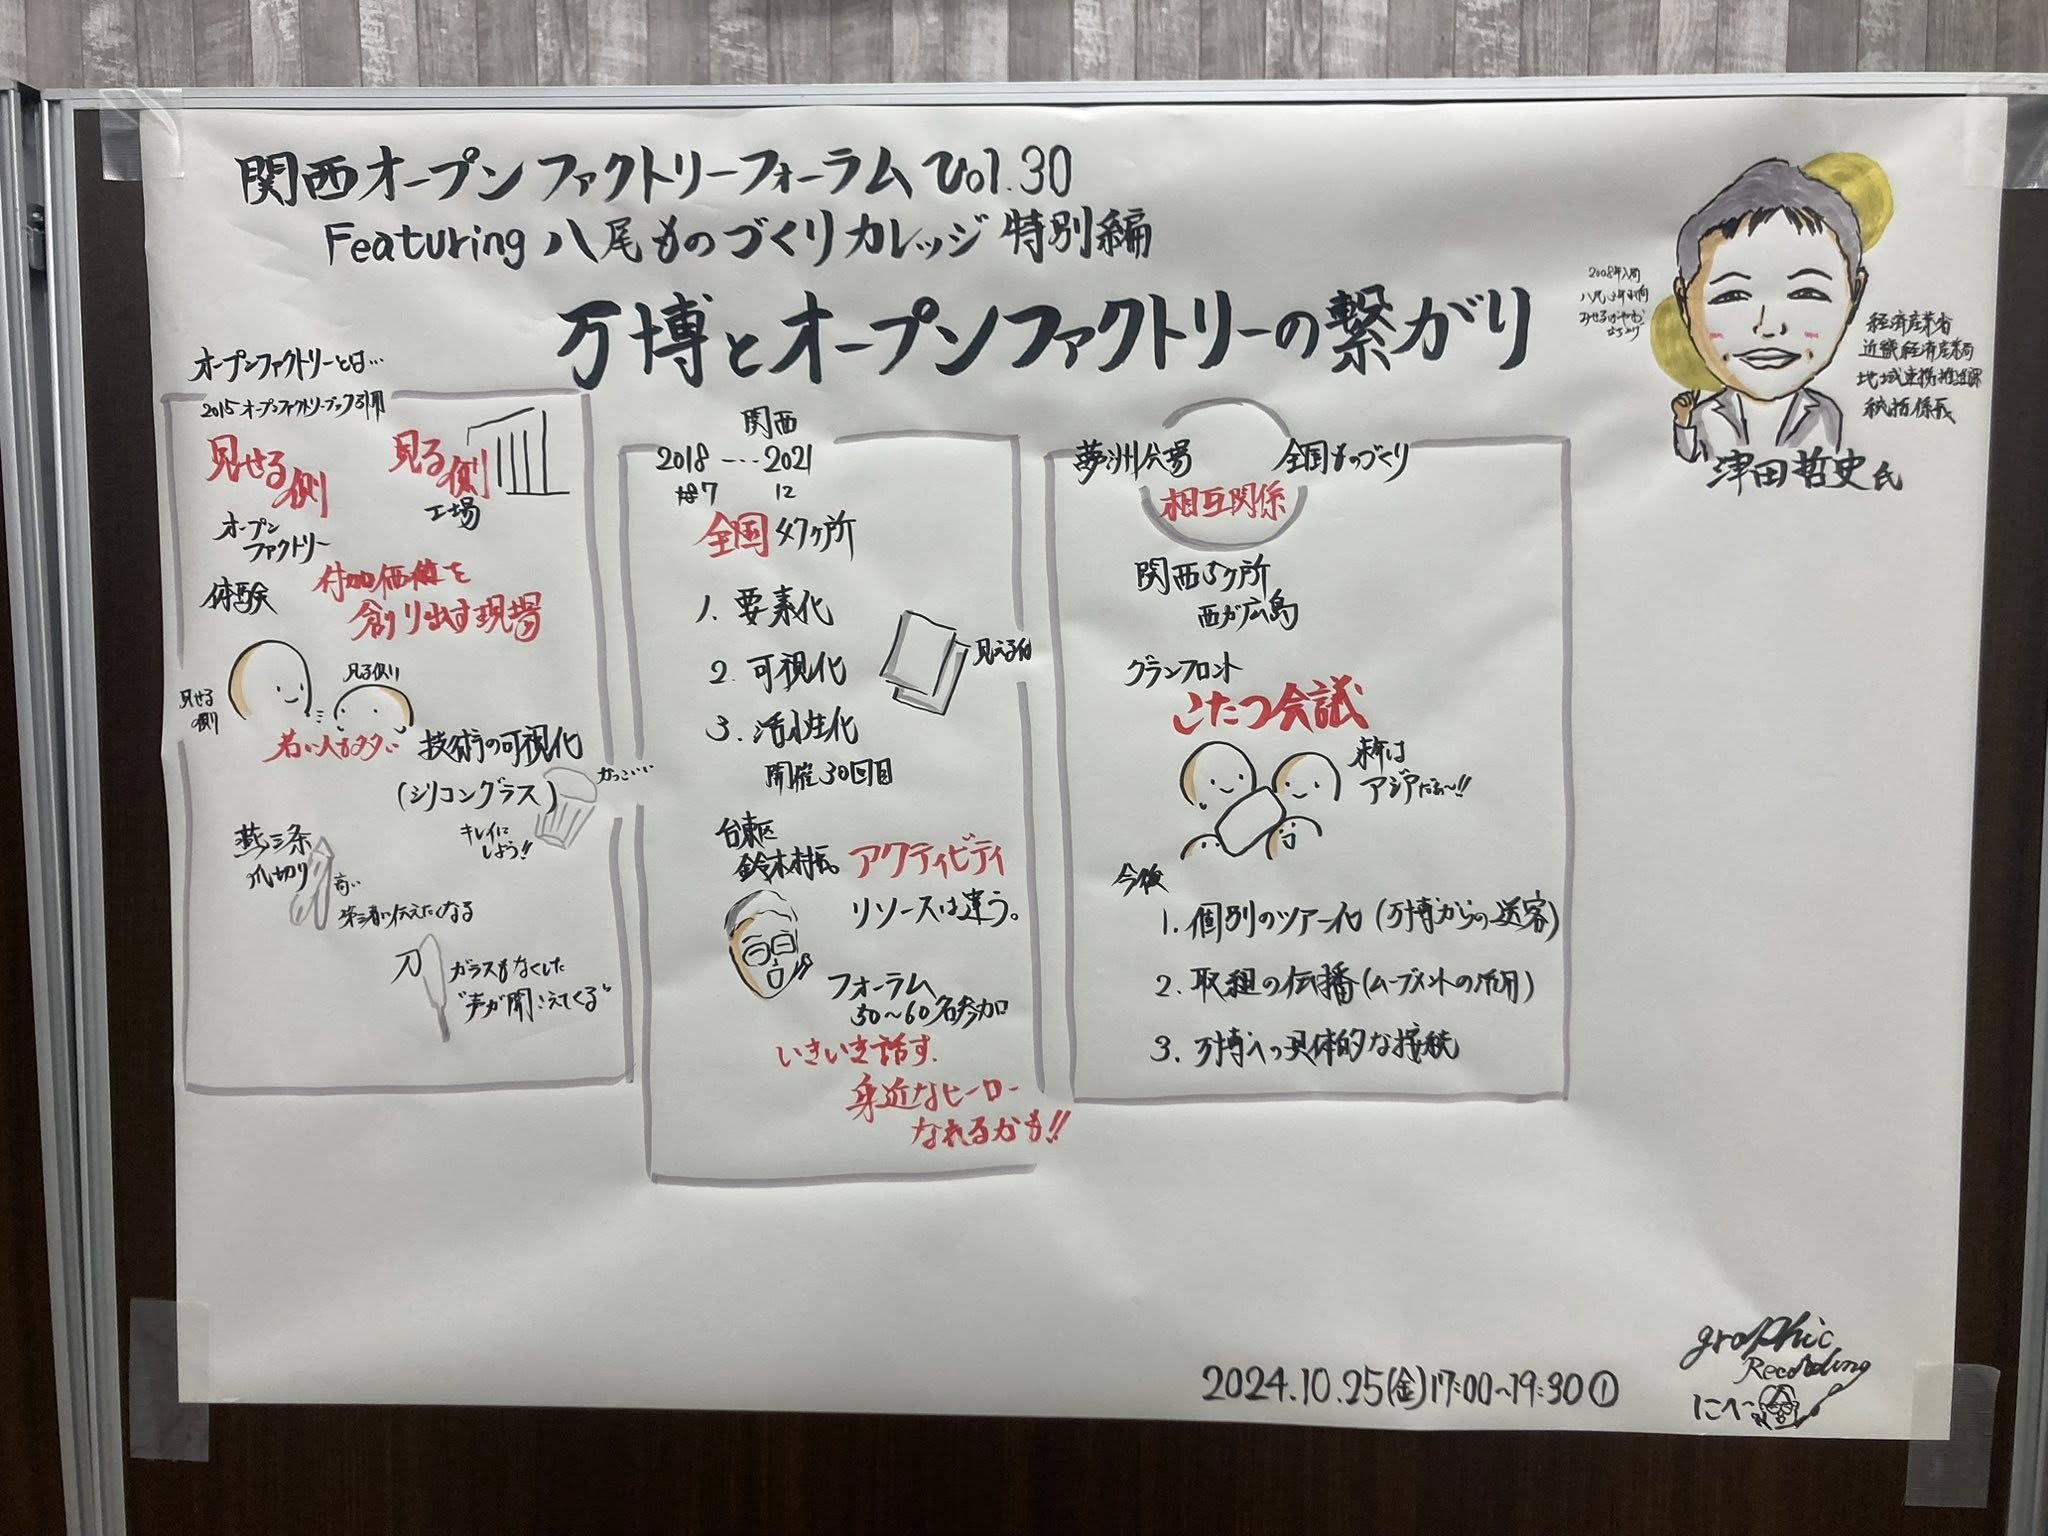 関西オープンファクトリーフォーラム Vol.30
Featuring 八尾ものづくりカレッジ 特別編
万博とオープンファクトリーの繋がり
2008年入局
八尾
みせるばやお
立ち上げ
経済産業省
近畿経済産業局
地域連携推進課
統括係長
津田哲史氏
オープンファクトリーとは…
2015 オープンファクトリーブック引用
見せる側
見る側
工場
オープン
ファクトリー
体験
付加価値を
創り出す現場
見せる
側
見る側
若い人も多い
技術の可視化
(シリコングラス)
かっこいい
キレイに
しよう!!
燕三条
爪切り
高い
第三者に伝えたくなる
刀
ガラスもなくした
"声が聞こえてくる"
関西
2018 --- 2021
7 12
全国 47ヶ所
1. 要素化
2. 可視化
3. 活性化
見える化
開催30回目
台東区
鈴木村氏
アクティビティ
リソースは違う。
フォーラム
50～60名参加
いきいき話す.
身近なヒーロー
なれるかも!!
夢洲会場
全国ものづくり
相互関係
関西5ヶ所
西が広島
グランフロント
こたつ会議
来年は
アジアだぁ～!!
今後
1. 個別のツアー化 (万博からの送客)
2. 取組の伝播 (ムーブメントの活用)
3. 万博への具体的な接続
2024.10.25(金)17:00～19:30①
graphic
Recording
にへい